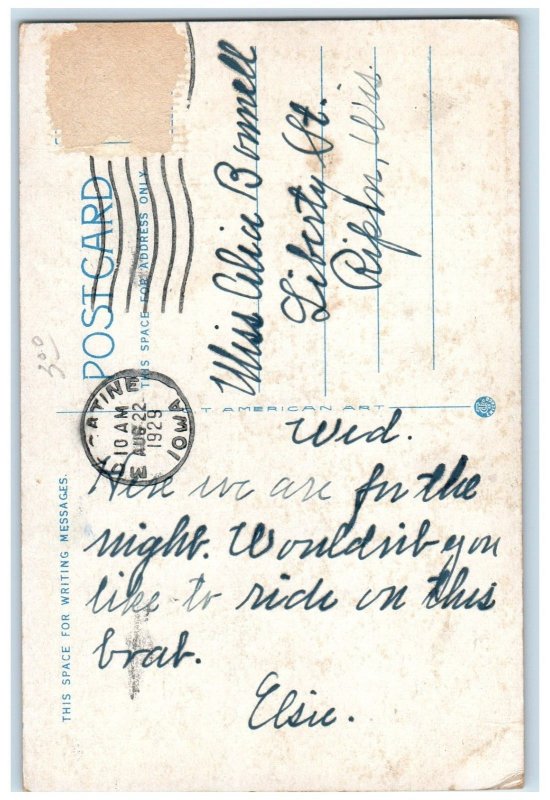 POST CARD
THIS SPACE FOR ADDRESS ONLY
Miss Celia Bonnell
Liberty St.
Ripon, Wis.
300
10 AM
AUG 22
1929
IOWA
T AMERICAN ART
THIS SPACE FOR WRITING MESSAGES.
Wed.
Here we are for the
night. Wouldn't you
like to ride on this
boat.
Elsie.